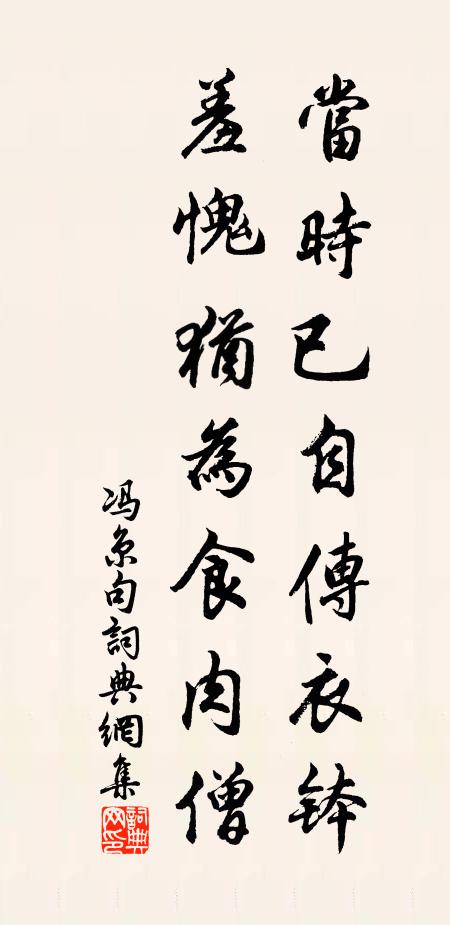 當時已自傳衣鉢
羞愧猶為食肉僧
冯京句詞典網集
詞典網印